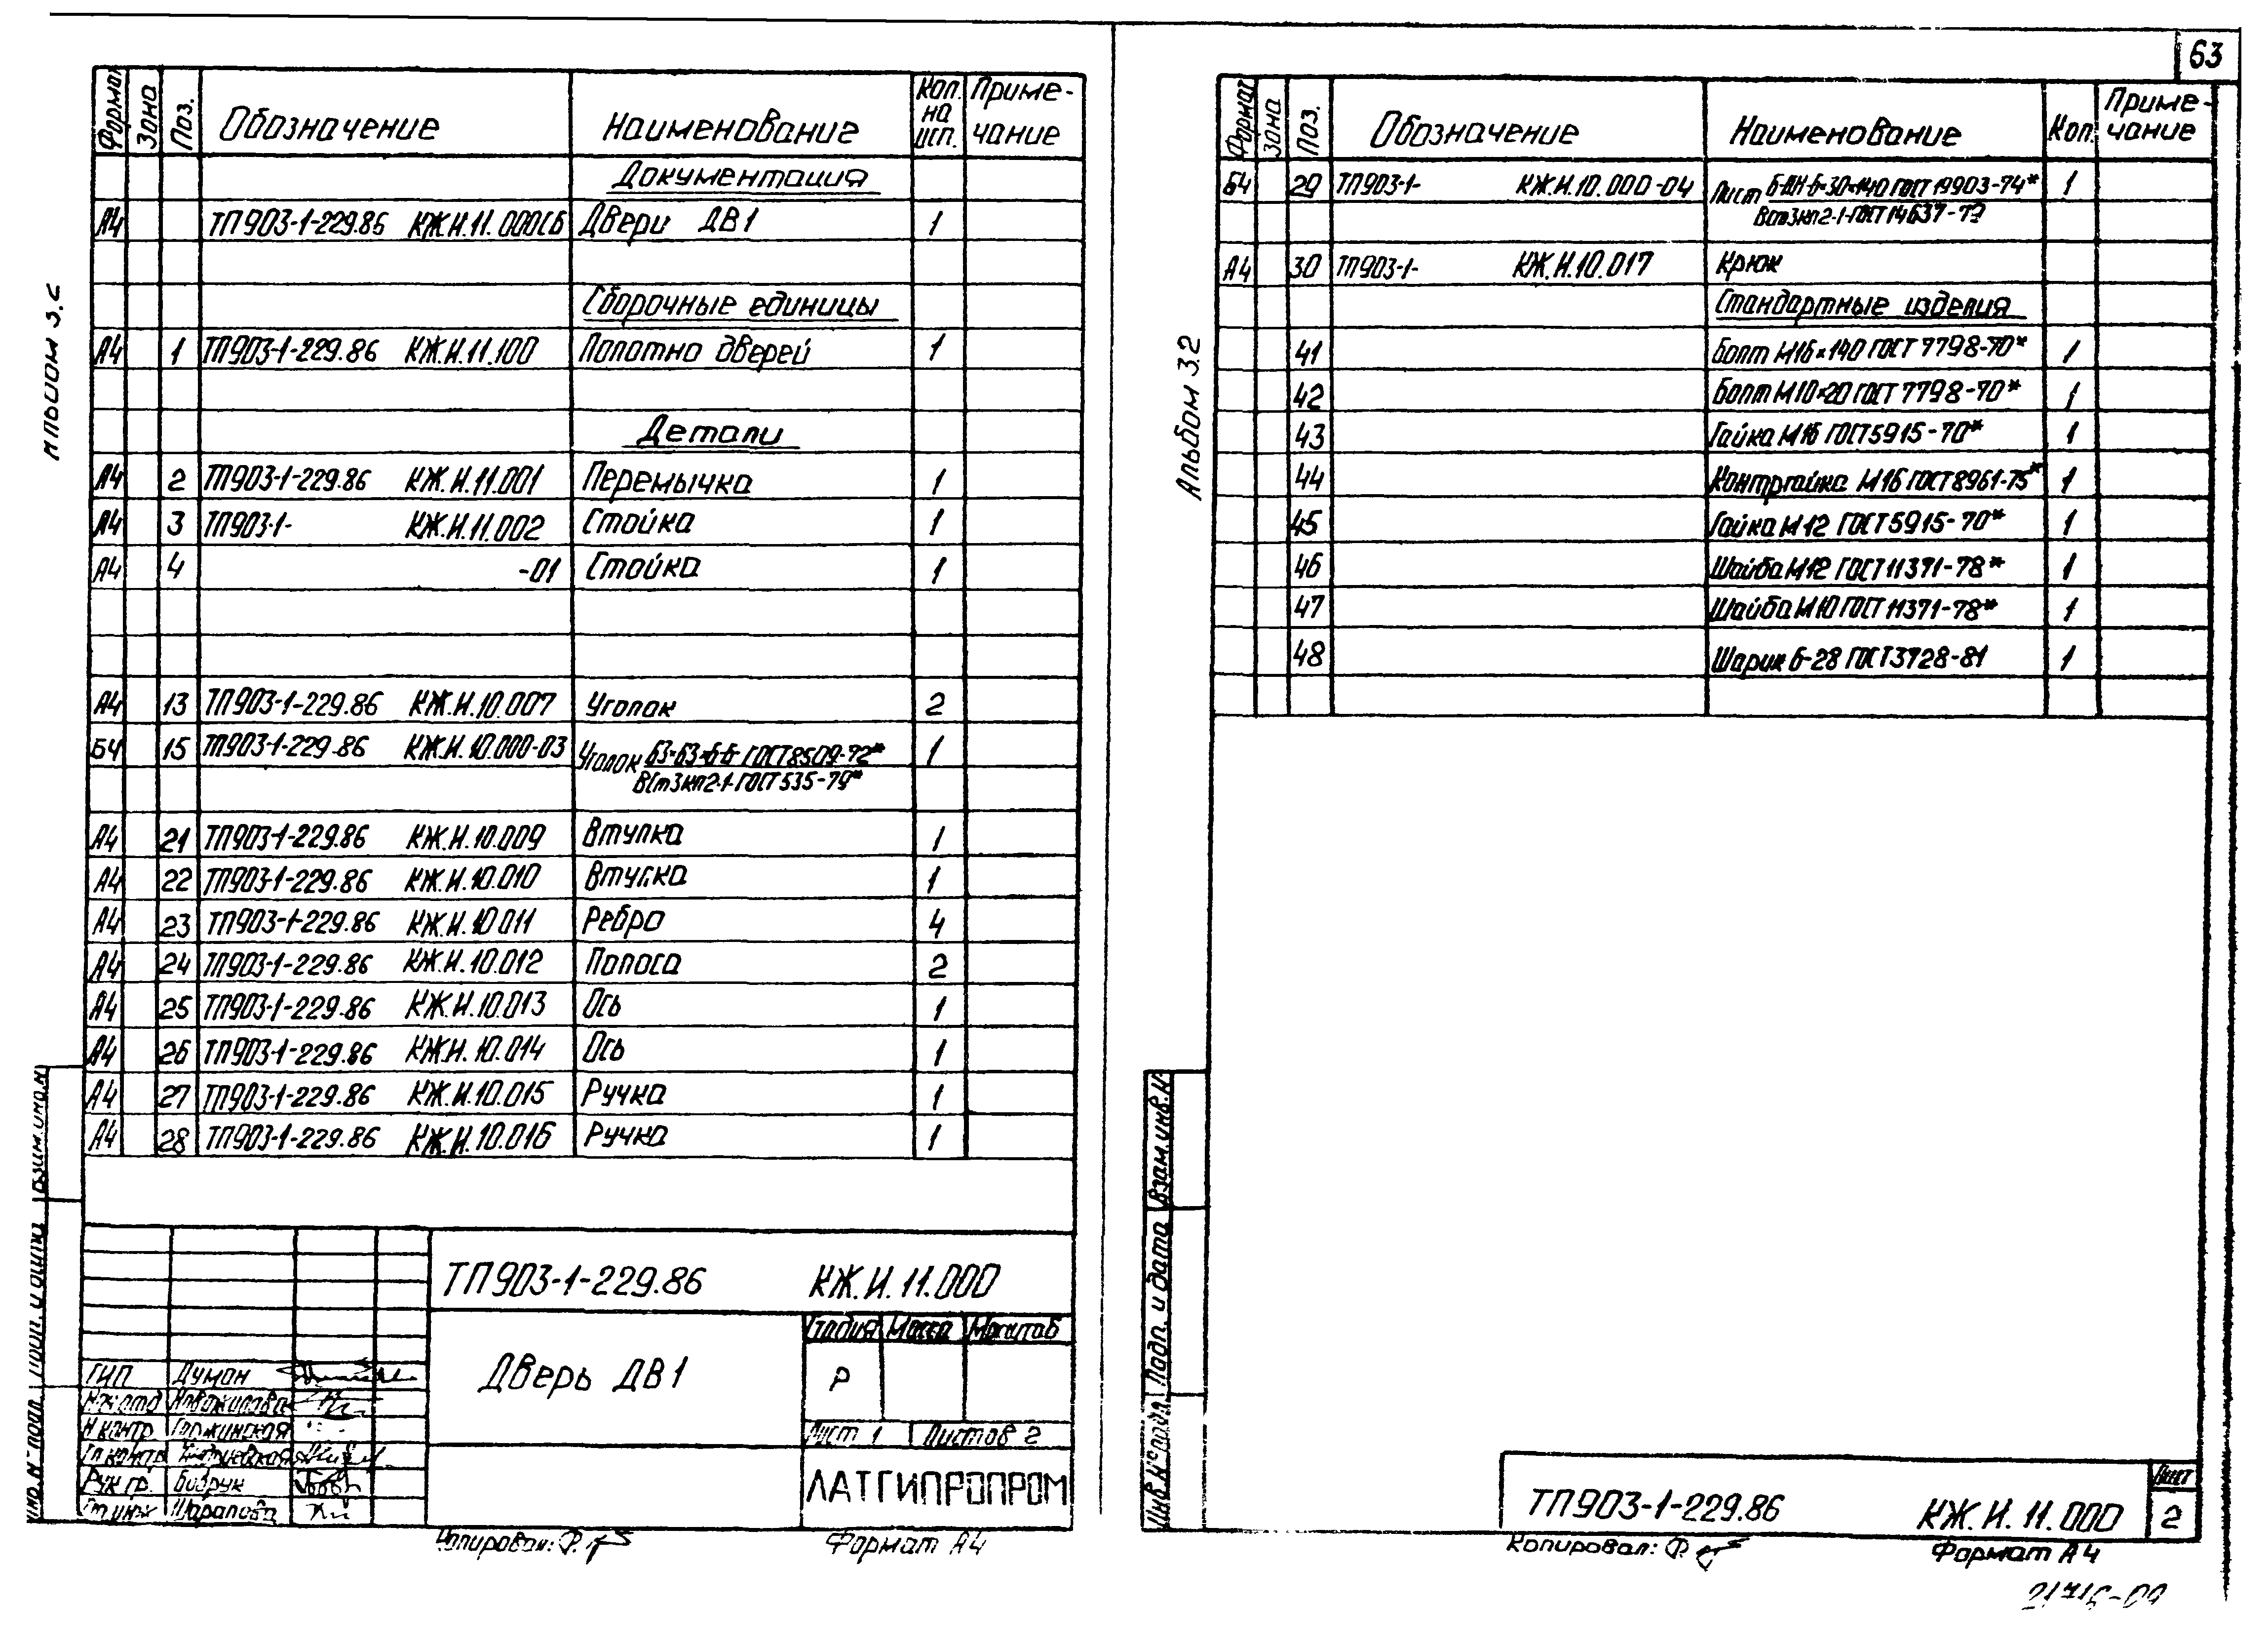 63
Альбом 3.2
Формат Зона Поз. Обозначение Наименование Кол. на исп. Примечание
Документация
А4 ТП903-1-229.86 КЖ.И.11.000СБ Двери ДВ1 1
Сборочные единицы
А4 1 ТП903-1-229.86 КЖ.И.11.100 Полотно дверей 1
Детали
А4 2 ТП903-1-229.86 КЖ.И.11.001 Перемычка 1
А4 3 ТП903-1- КЖ.И.11.002 Стойка 1
А4 4 -01 Стойка 1
А4 13 ТП903-1-229.86 КЖ.И.10.007 Уголок 2
Б4 15 ТП903-1-229.86 КЖ.И.10.000-03 Уголок 63×63×6-Б ГОСТ8509-72* 1
ВСт3кп2-1-ГОСТ535-79*
А4 21 ТП903-1-229.86 КЖ.И.10.009 Втулка 1
А4 22 ТП903-1-229.86 КЖ.И.10.010 Втулка 1
А4 23 ТП903-1-229.86 КЖ.И.10.011 Ребро 4
А4 24 ТП903-1-229.86 КЖ.И.10.012 Полоса 2
А4 25 ТП903-1-229.86 КЖ.И.10.013 Ось 1
А4 26 ТП903-1-229.86 КЖ.И.10.014 Ось 1
А4 27 ТП903-1-229.86 КЖ.И.10.015 Ручка 1
А4 28 ТП903-1-229.86 КЖ.И.10.016 Ручка 1
ТП903-1-229.86 КЖ.И.11.000
Дверь ДВ1
Стадия Масса Масштаб
Р
Лист 1 Листов 2
ЛАТГИПРОПРОМ
ГИП Думан
Нач.отд Новожилова
Н.контр.
Гл.контр.
Рук.гр. Бобрук
Ст.инж Шарапова
Копировал:
Формат А4
Взам.инв.N
Подп. и дата
Инв.N подл.
Альбом 3.2
Формат Зона Поз. Обозначение Наименование Кол. Примечание
Б4 29 ТП903-1- КЖ.И.10.000-04 Лист Б-ПН-6×30×140 ГОСТ 19903-74* 1
ВСт3кп2-1-ГОСТ14637-79
А4 30 ТП903-1- КЖ.И.10.017 Крюк
Стандартные изделия
41 Болт М16×140 ГОСТ 7798-70* 1
42 Болт М10×20 ГОСТ 7798-70* 1
43 Гайка М16 ГОСТ5915-70* 1
44 Контргайка М16 ГОСТ8961-75* 1
45 Гайка М12 ГОСТ5915-70* 1
46 Шайба М12 ГОСТ11371-78* 1
47 Шайба М10 ГОСТ 11371-78* 1
48 Шарик Б-28 ГОСТ3728-81 1
Взам.инв.N
Подп. и дата
Инв.N° подл.
ТП903-1-229.86 КЖ.И.11.000
Лист
2
Копировал:
Формат А4